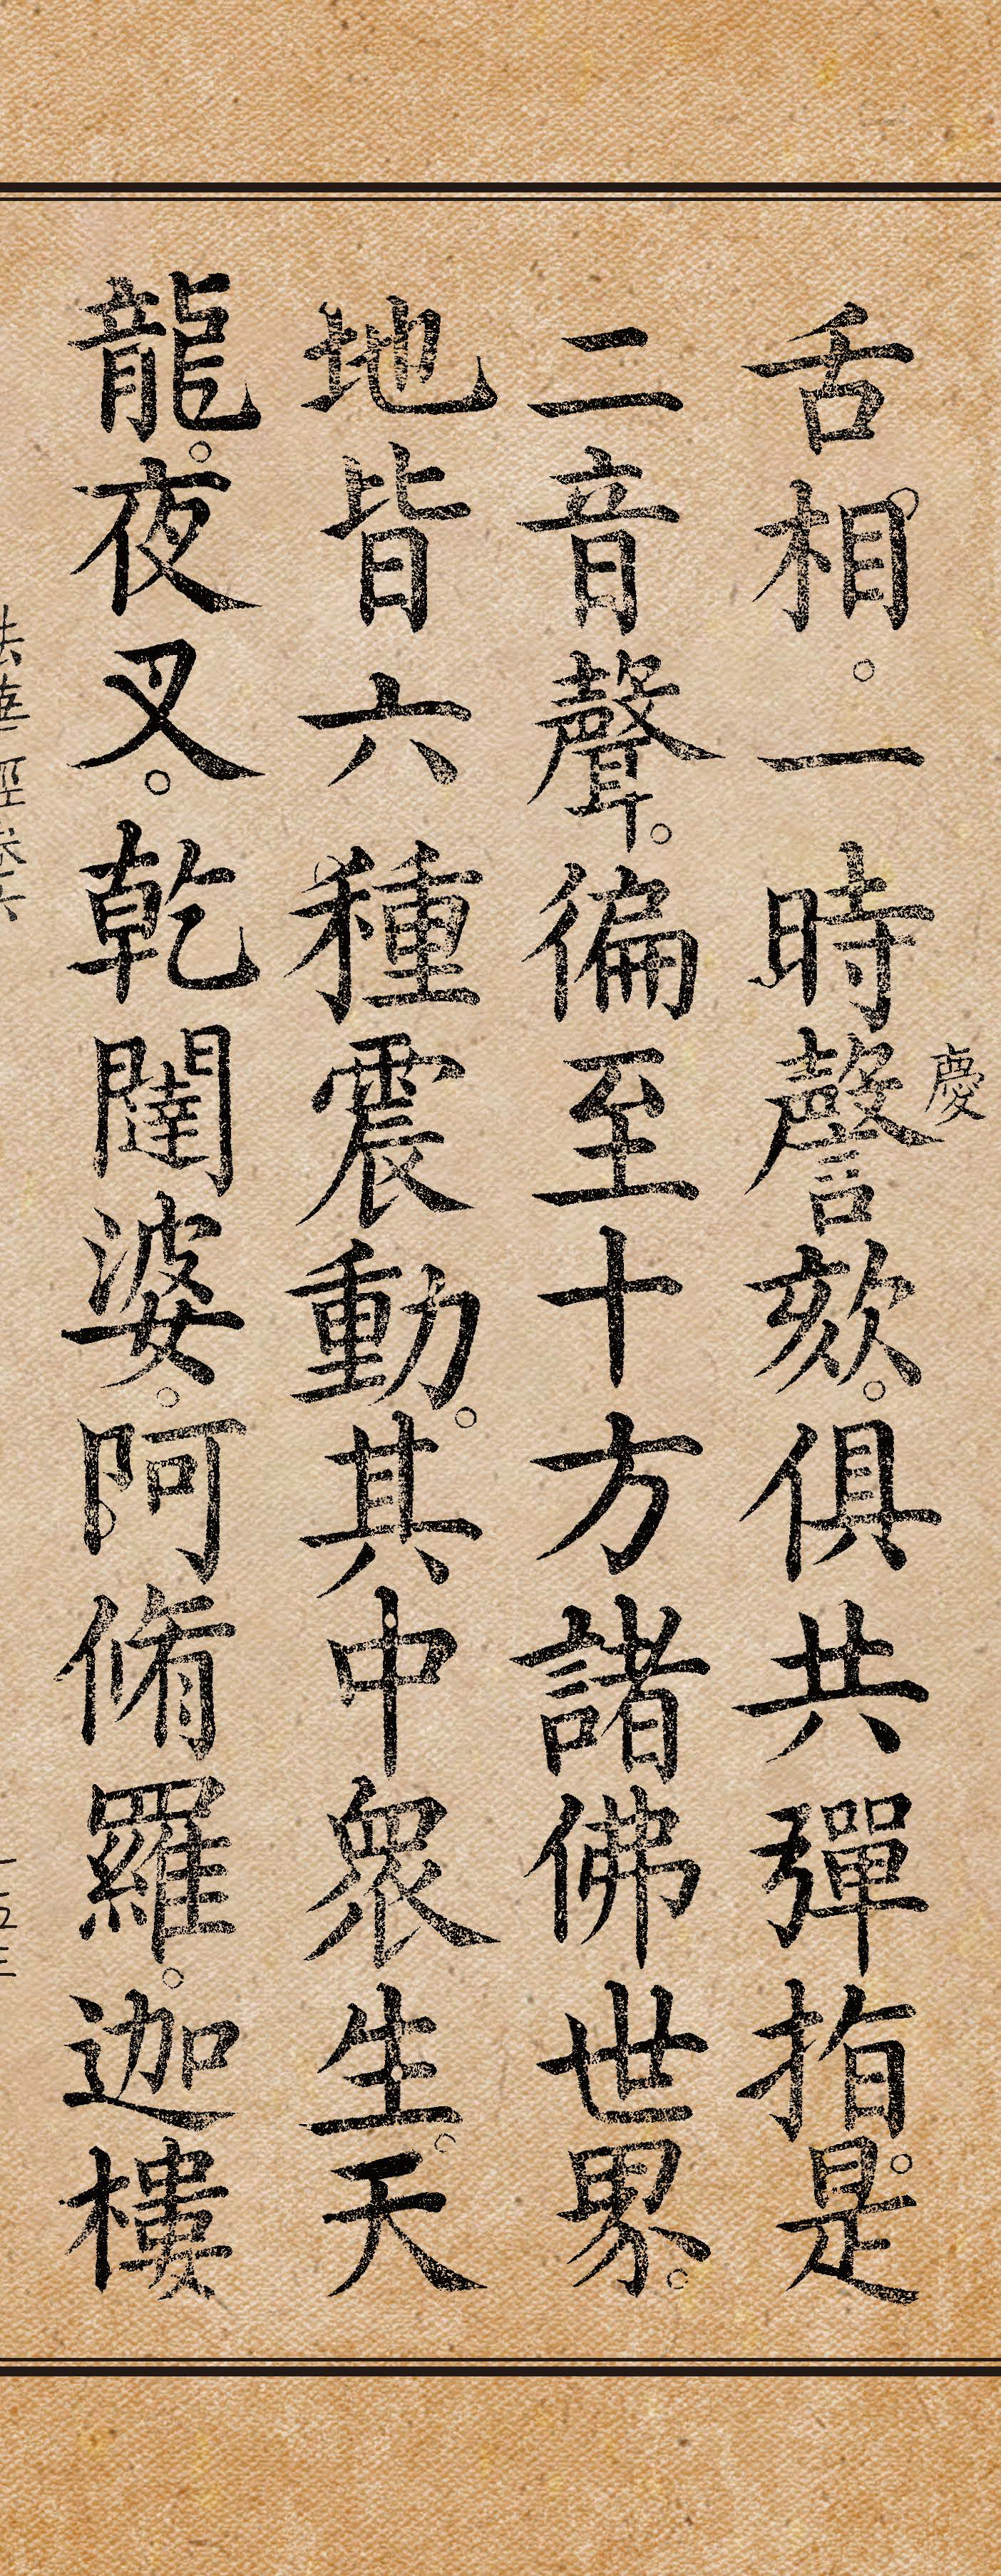 舌相。一時謦欬。俱共彈指。是
慶
二音聲。徧至十方諸佛世界。
地皆六種震動。其中眾生。天
龍。夜叉。乾闥婆。阿脩羅。迦樓